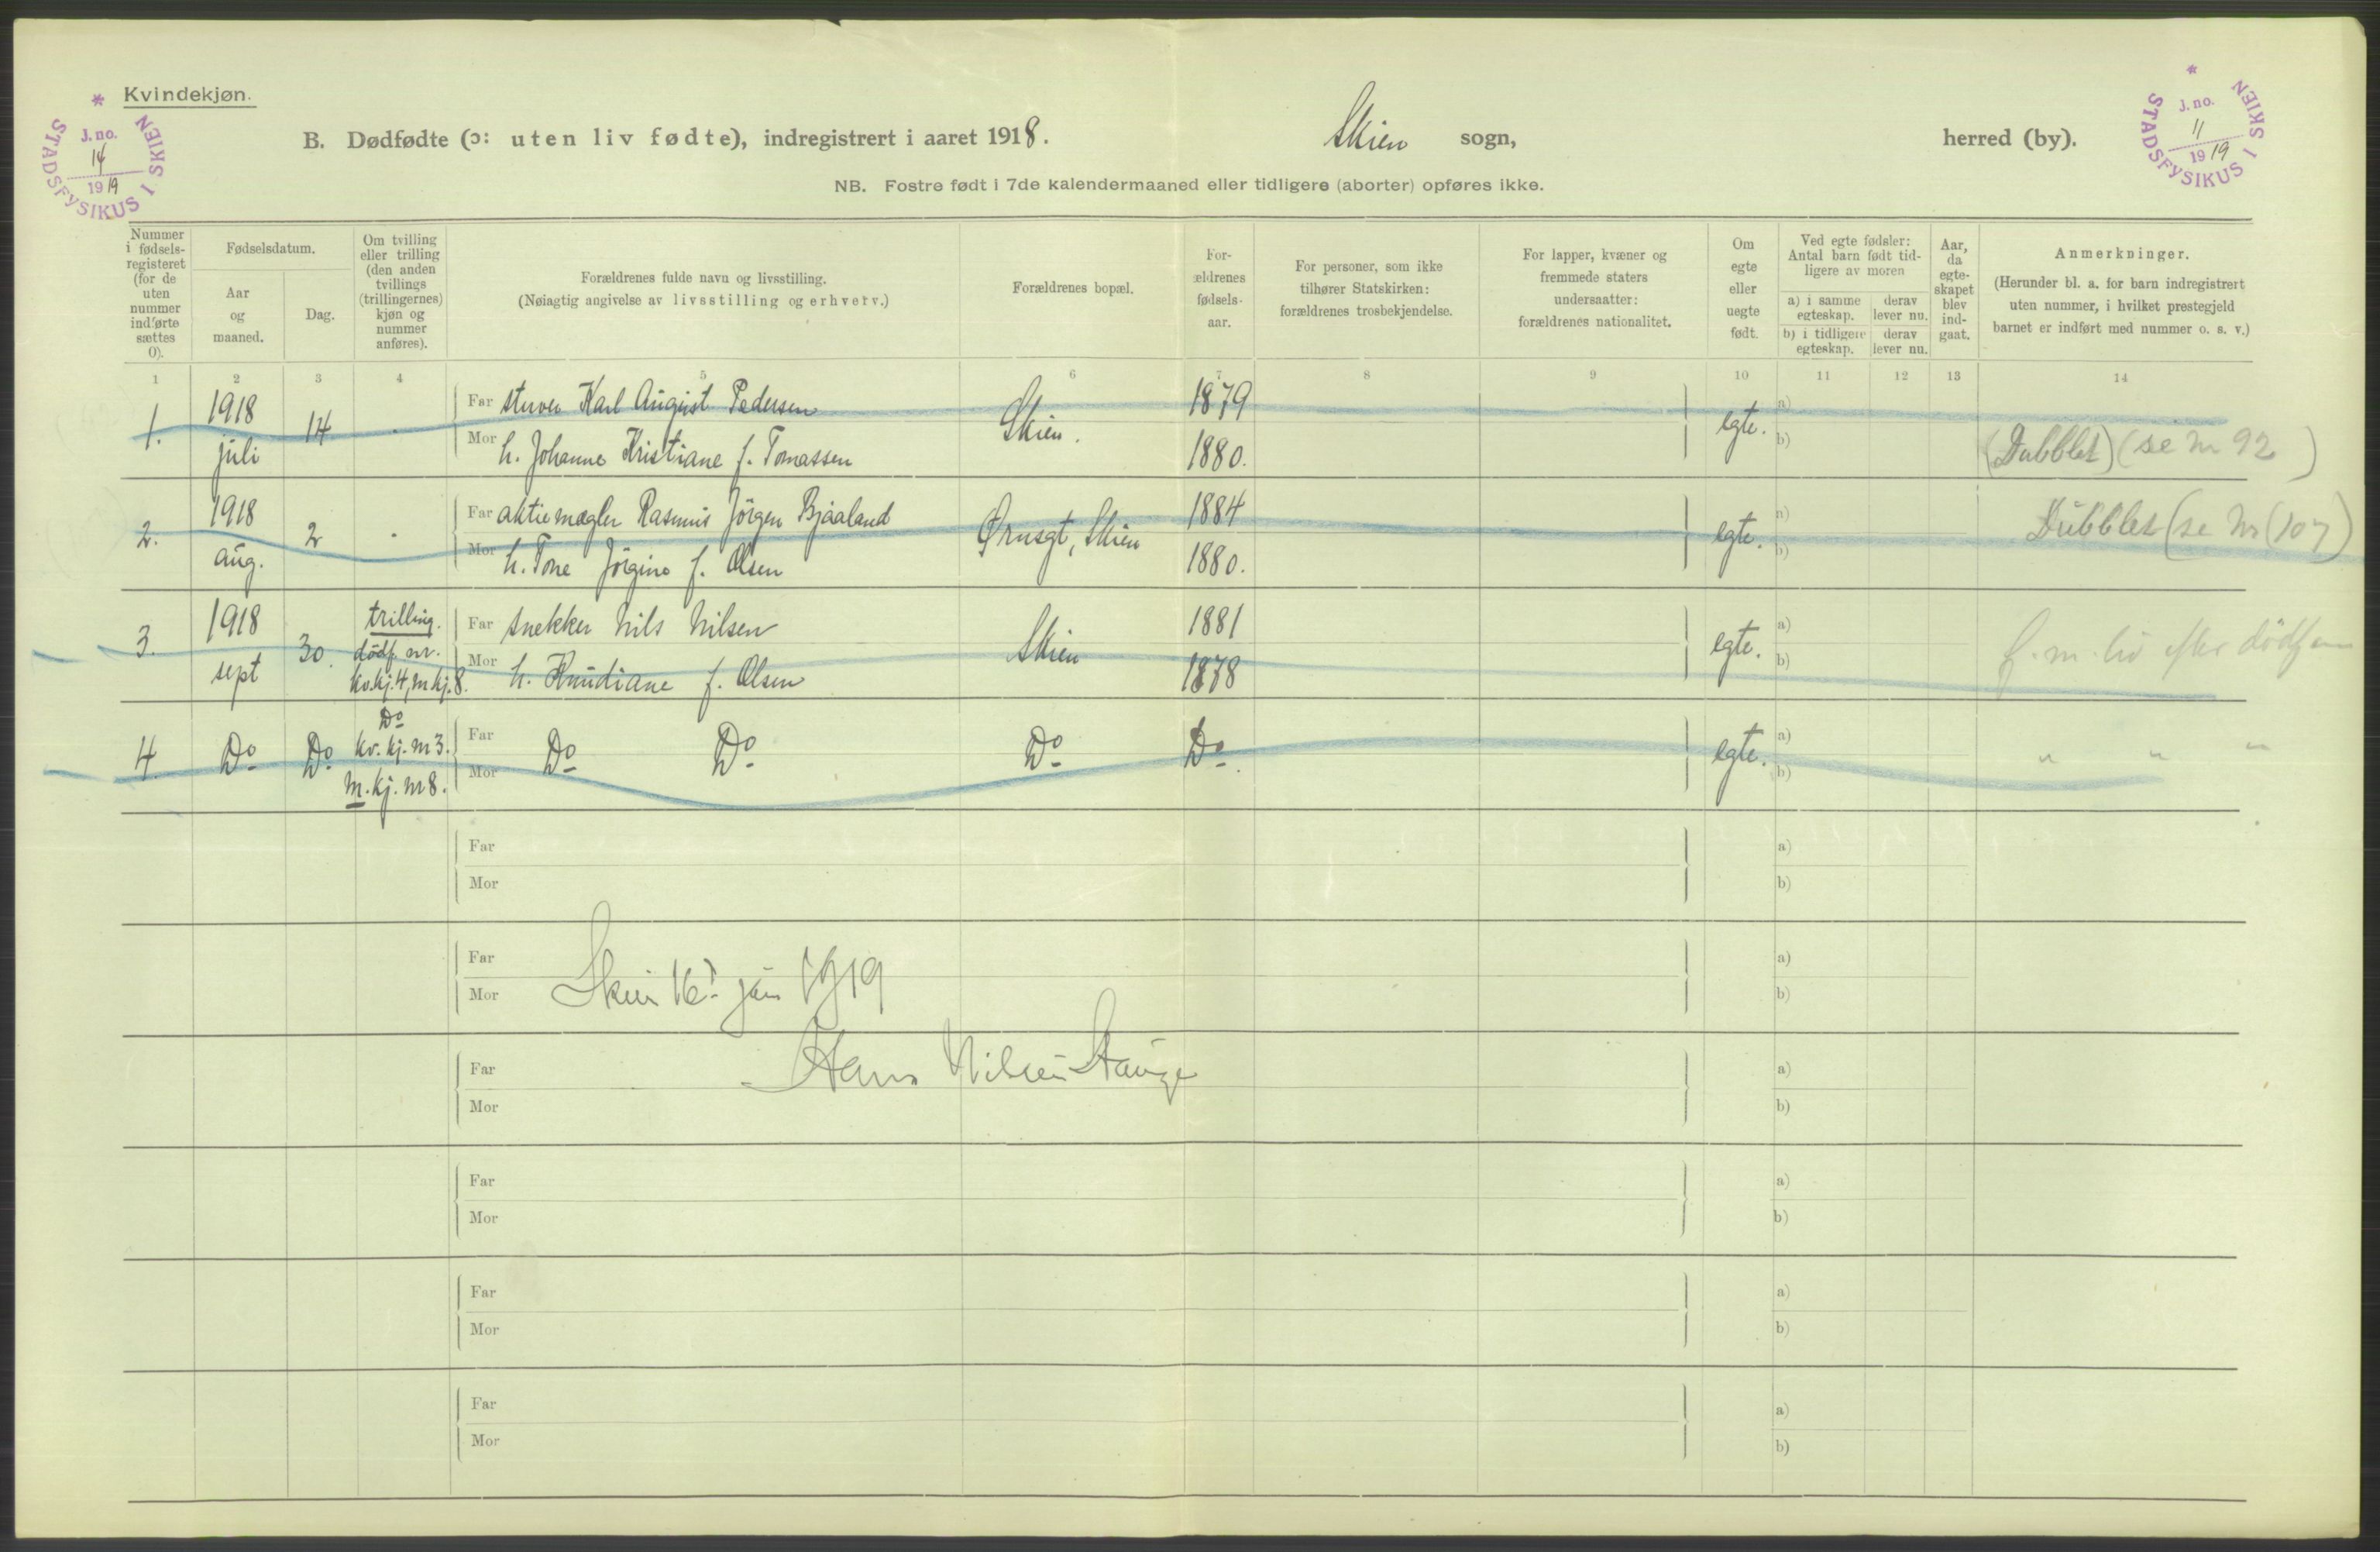 Kvindekjøn.
STADSFYSIKUS I SKIEN *
J. no.
14
1919
B. Dødfødte (ɔ: uten liv fødte), indregistrert i aaret 1918. Skien sogn, herred (by).
NB. Fostre født i 7de kalendermaaned eller tidligere (aborter) opføres ikke.
STADSFYSIKUS I SKIEN *
J. no.
11
1919
Nummer i fødsels-registeret (for de uten nummer indførte sættes 0).
Fødselsdatum.
Aar og maaned.
Dag.
Om tvilling eller trilling (den anden tvillings (trillingernes) kjøn og nummer anføres).
Forældrenes fulde navn og livsstilling.
(Nøiagtig angivelse av livsstilling og erhverv.)
Forældrenes bopæl.
For-ældrenes fødsels-aar.
For personer, som ikke tilhører Statskirken: forældrenes trosbekjendelse.
For lapper, kvæner og fremmede staters undersaatter: forældrenes nationalitet.
Om egte eller uegte født.
Ved egte fødsler: Antal barn født tid-ligere av moren
a) i samme egteskap. derav lever nu.
b) i tidligere egteskap. derav lever nu.
Aar, da egte-skapet blev ind-gaat.
Anmerkninger.
(Herunder bl. a. for barn indregistrert uten nummer, i hvilket prestegjeld barnet er indført med nummer o. s. v.)
1 2 3 4 5 6 7 8 9 10 11 12 13 14
1. 1918 juli 14 .
Far stuver Karl August Pedersen Skien. 1879 egte. a)
Mor h. Johanne Kristiane f. Tomassen 1880. b) (Dubblet) (se nr 92)
2. 1918 aug. 2 .
Far aktiemægler Rasmus Jörgen Bjåaland Ørnsgt, Skien 1884 egte. a) Dubblet (se nr (107)
Mor h. Tone Jörgine f. Olsen 1880. b)
3. 1918 sept 30. trilling. dödf. nr. kv.kj. 4, m.kj. 8.
Far snekker Nils Nilsen Skien 1881 egte. a)
Mor h. Knudiane f. Olsen 1878 b) f. m. liv efter dödf
4. Do Do Do kv. kj. nr 3. m. kj. nr 8.
Far Do Do Do Do. egte. a)
Mor b) " " "
Far a)
Mor b)
Far a)
Mor Skien 16' jan 1919 b)
Far Hans Nilsen Hauge a)
Mor b)
Far a)
Mor b)
Far a)
Mor b)
Far a)
Mor b)